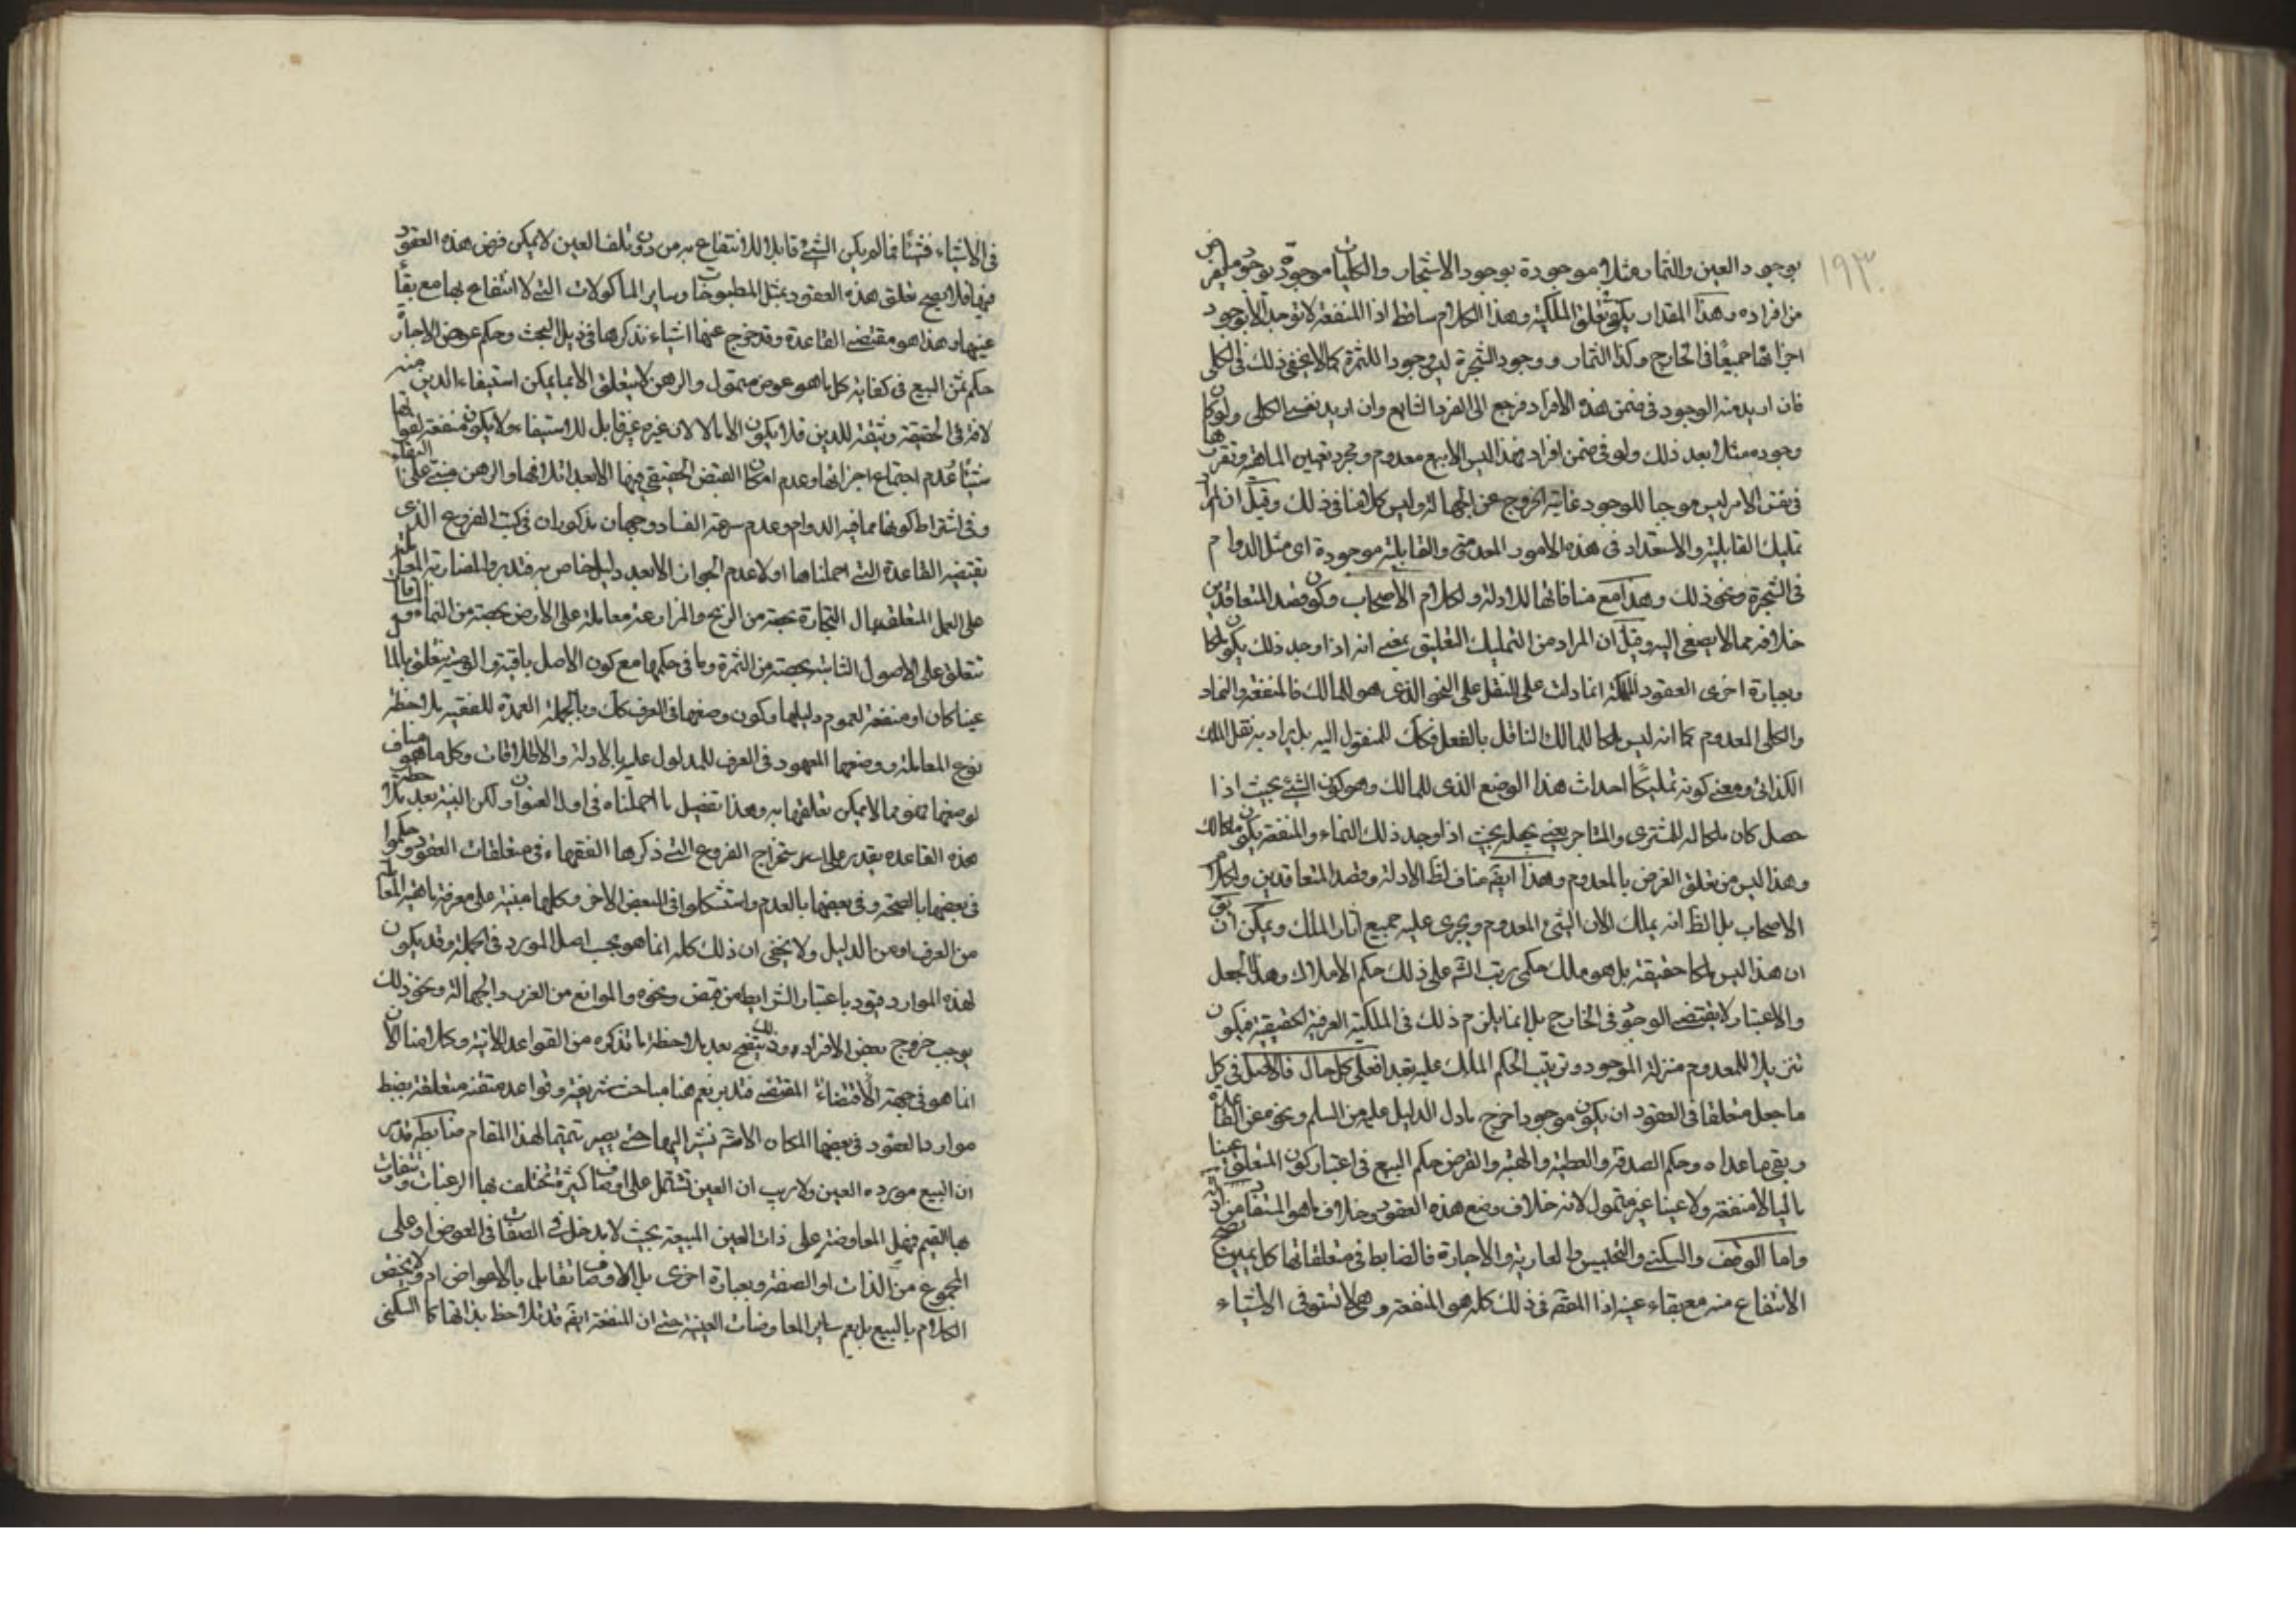 ١٩٣
بوجود العين والثمار مثلا موجودة بوجود الاشجار والكليات موجودة بوجود ما يفرض
من افراده وهذا المقدار يكفى تعلق الملكية وهذا الكلام ساقط اذ المنفعة لا توجد الا بوجود
اجزائها جميعا فى الخارج وكذا الثمار ووجود الشجرة ليس وجودا للثمرة كما لا يخفى ذلك فى الكلى
فان اريد منه الوجود فى ضمن هذه الافراد فرجع الى الفرد الشايع وان اريد نفس الكلى ولو كان
وجوده مثلا بعد ذلك ولو فى ضمن افراد فهذا ليس الا بيع معدوم ومجرد تعيين الماهية وتقررها
فى نفس الامر ليس موجبا للوجود غاية الخروج عن الجهالة وليس كلامنا فى ذلك وقيل ان المراد
تمليك القابلية والاستعداد فى هذه الامور المعدومة والقابلية موجودة اى مثل الدوام
فى الشجرة ونحو ذلك وهذا مع منافاتها للادلة ولكلام الاصحاب وكون قصد المتعاقدين
خلافه مما لا يصغى اليه وقيل ان المراد من التمليك التعليق بمعنى انه اذا وجد ذلك يكون ملكا
وبعبارة اخرى العقود المملكة انما دلت على النقل على النحو الذى هو للمالك فالمنفعة والثمار
والكلى المعدوم كما انه ليس ملكا للمالك الناقل بالفعل فكذلك للمنقول اليه بل يراد به نقل الملك
الكذائى ومعنى كونه تمليكا احداث هذا الوضع الذى للمالك وهو كون الشئ بحيث اذا
حصل كان ملكا له للمشترى والمستاجر يعنى يجعله بحيث اذا وجد ذلك النماء والمنفعة يكون ملكا لك
وهذا ليس من تعلق الغرض بالمعدوم وهذا ايضا مناف لظ الادلة وقصد المتعاقدين ولكلام
الاصحاب بل الظ انه يملك الان الشئ المعدوم ويجرى عليه جميع اثار الملك ويمكن ان يق
ان هذا ليس ملكا حقيقة بل هو ملك حكمى رتب الشرع على ذلك حكم الاملاك وهذا الجعل
والاعتبار لا يقتضى الوجود فى الخارج بل انما يلزم ذلك فى الملكية العرفية الحقيقية فيكون
تنزيلا للمعدوم منزلة الموجود وترتيب الحكم الملك عليه تعبدا فعلى كل حال فالاصل فى كل
ما جعل متعلقا فى العقود ان يكون موجودا خرج ما دل الدليل عليه من السلم ونحوه عن القاعدة
وبقى ما عداه وحكم الصدقة والعطية والهبة والقرض حكم البيع فى اعتبار كون المتعلق عينا
ماليا لا منفعة ولا عينا غير متمول لانه خلاف وضع هذه العقود وخلاف ما هو المتفاهم من ادلتها
واما الوقف والسكنى والتحبيس والعارية والاجارة فالضابط فى متعلقاتها كل عين يصح
الانتفاع منه مع بقاء عينه اذ المقصود فى ذلك كله هو المنفعة وهى لا تستوفى الا شيئا
فى الاشياء فشيئا فما لم يكن الشئ قابلا للانتفاع به من دون تلف العين لا يمكن فرض هذه العقود
فيها فلا يصح تعلق هذه العقود بمثل المطبوخات وساير الماكولات التى لا انتفاع بها مع بقاء
عينها وهذا هو مقتضى القاعدة وقد خرج عنها اشياء نذكرها فى ذيل البحث وحكم عوض الاجارة
حكم ثمن البيع فى كفاية كل ما هو عوض متمول والرهن لا يتعلق الا بما يمكن استيفاء الدين منه
لانه فى الحقيقة وثيقة للدين فلا يكون الا مالا لان غيره غير قابل للاستيفاء ولا يكون منفعة لفواتها
شيئا فشيئا عدم اجتماع اجزائها وعدم امكان القبض الحقيقى فيها الا بعد اتلافها والرهن مبنى على البقاء
وفى اشتراط كونها مما فيه الدوام وعدم سرعة الفساد وجهان مذكوران فى كتب الفروع الذى
يقتضيه القاعدة التى اجملناها اولا عدم الجواز الا بعد دليل خاص به فتدبر والمضاربة المعاملة
على العمل المتعلق بمال التجارة بحصة من الربح والمزارعة معاملة على الارض بحصة من النماء والمساقاة
تتعلق على الاصول الثابتة بحصة من الثمرة وما فى حكمها مع كون الاصل باقية والوصية تتعلق بالمال
عينا كان او منفعة لعموم دليلها وكون وصفها فى العرف كذلك وبالجملة العمدة للفقيه ملاحظة
نوع المعاملة ووضعها المعهود فى العرف للمدلول عليه بالادلة والاطلاقات وكل ما هو مناف
لوضعها فهو مما لا يمكن تعلقها به وهذا تفصيل ما اجملناه فى اول العنوان ولكن البنية بعد ملاحظة
هذه القاعدة يقدر على استخراج الفروع التى ذكرها الفقهاء فى متعلقات العقود وحكموا
فى بعضها بالصحة وفى بعضها بالعدم واستشكلوا فى البعض الاخر وكلها مبنية على معرفة ماهية المعاملة
من العرف او من الدليل ولا يخفى ان ذلك كله انما هو بحسب اصل المورد فى الجملة وقد يكون
لهذه الموارد قيود باعتبار الشرايط من قبض ونحوه والموانع من الغرر والجهالة ونحو ذلك
يوجب خروج بعض الافراد وذلك يتضح بعد ملاحظة ما نذكره من القواعد الاتية وكلامنا الان
انما هو فى جهة الاقتضاء المقتضى فتدبر نعم هنا مباحث شريفة وقواعد متقنة متعلقة بضبط
موارد العقود فى بعضها المكان الاتى نشير اليها حتى يصير تتميما لهذا المقام ضابطة قد
ان البيع مورده العين ولا ريب ان العين تشتمل على اوصاف كثيرة تختلف بها الرغبات وتتفاوت
بها القيم فهل المعاوضة على ذات العين المبيعة بحيث لا يدخل فى الصفات فى العوض او على
المجموع من الذات او الصفة وبعبارة اخرى بل الاوصاف تقابل بالاعواض ام ولا يختص
الكلام بالبيع بل يعم ساير المعاوضات العينية حتى ان المنفعة ايضا قد تلاحظ بذاتها كالسكنى